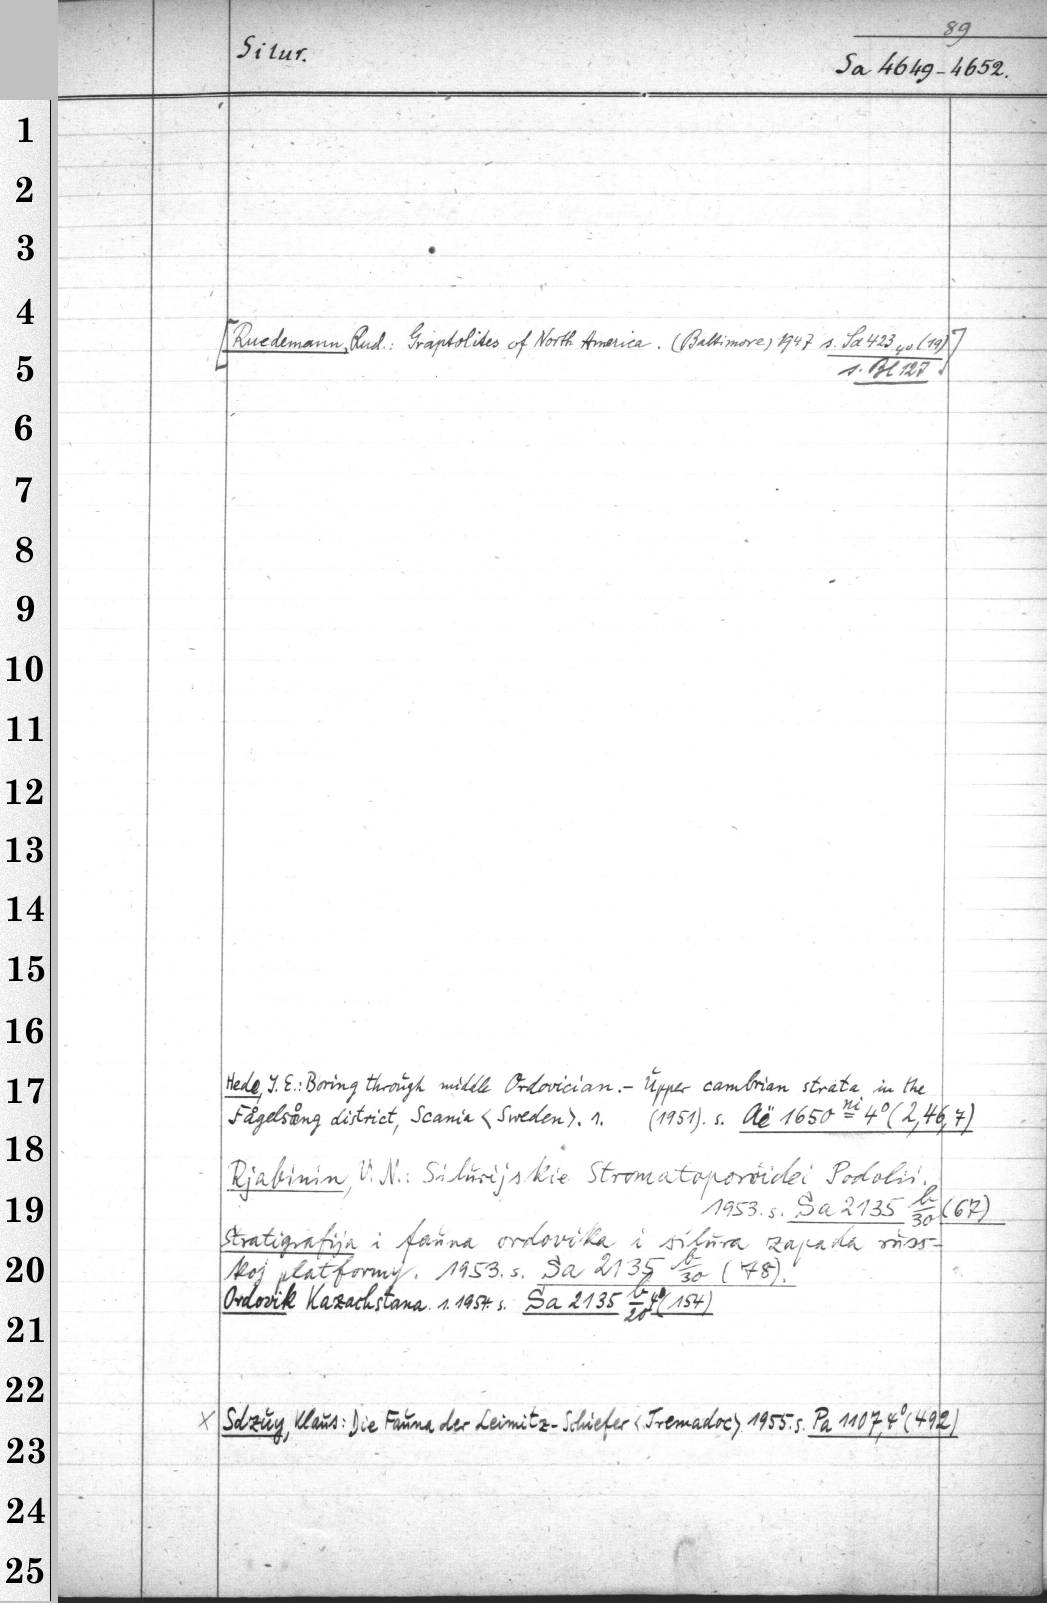 89
Silur.
Sa 4649-4652.
1
2
3
4
[Ruedemann, Rud.: Graptolites of North America. (Baltimore) 1947 s. Sa 423 4° (19)]
s. Bl 127
5
6
7
8
9
10
11
12
13
14
15
16
17
Hede, J. E.: Boring through middle Ordovician.- Upper cambrian strata in the
Fågelsång district, Scania <Sweden>. 1. (1951). s. Aë 1650 ni 4° (2,46,7)
18
Rjabinin, V. N.: Silurijskie Stromatoporoidei Podolii.
1953. s. Sa 2135 b/30 (67)
19
Stratigrafija i fauna ordovika i silura zapada russ-
koj platformy. 1953. s. Sa 2135 b/30 (78).
20
Ordovik Kazachstana. 1. 1954. s. Sa 2135 b/20 4° (154)
21
22
x Sdzuy, Klaus: Die Fauna der Leimitz-Schiefer <Tremadoc> 1955. s. Pa 1107, 4° (492)
23
24
25